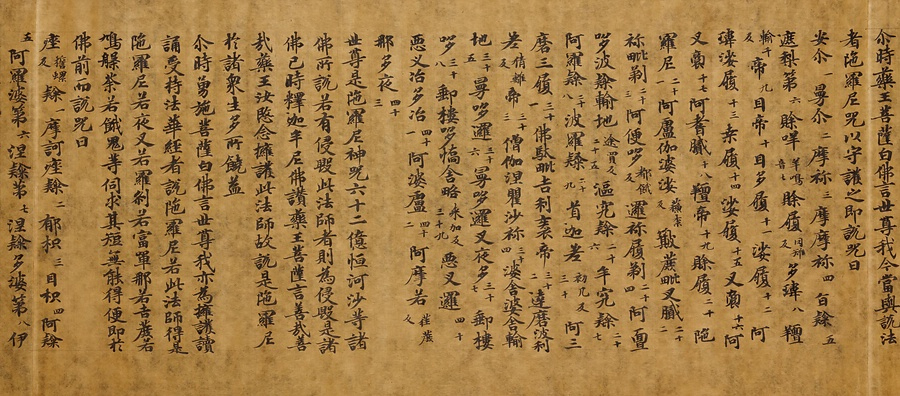 尒時藥王菩薩白佛言世尊我今當與說法
者陁羅尼咒以守護之即說咒曰
安尒一曼尒二摩祢三摩摩祢四百隸五
遮梨第六賒咩羊鳴音七賒履罔雉反多瑋八羶
輸千反帝九目帝十目多履十一娑履十二阿
瑋娑履十三桑履十四娑履十五叉裔十六阿
叉裔十七阿耆膩十八羶帝十九賒履二十陁
羅尼二十一阿盧伽婆娑蘇奈反簸蔗毗叉膩二十二
祢毗剃二十三阿便哆都餓反邏祢履剃二十四阿亶
哆波隸輸地途賣反二十五漚究隸二十六牟究隸二十七
阿羅隸二十八波羅隸二十九首迦差初几反三十阿三
磨三履三十一佛馱毗吉利袠帝三十二達磨波利
差猜離反帝三十三僧伽涅瞿沙祢三十四婆舍婆舍輸
地三十五曼哆邏三十六曼哆邏叉夜多三十七郵樓
哆三十八郵樓哆憍舍略來加反三十九惡叉邏四十
惡叉冶多冶四十一阿婆盧四十二阿摩若荏蔗反
那多夜四十三
世尊是陁羅尼神咒六十二億恒河沙等諸
佛所說若有侵毀此法師者則為侵毀是諸
佛已時釋迦牟尼佛讚藥王菩薩言善哉善
哉藥王汝愍念擁護此法師故說是陁羅尼
於諸眾生多所饒益
尒時勇施菩薩白佛言世尊我亦為擁護讀
誦受持法華經者說陁羅尼若此法師得是
陁羅尼若夜叉若羅剎若富單那若吉蔗若
鳩槃荼若餓鬼等伺求其短無能得便即於
佛前而說咒曰
痤誓螺反隸一摩訶痤隸二郁枳三目枳四阿隸
五阿羅婆第六涅隸第七涅隸多婆第八伊